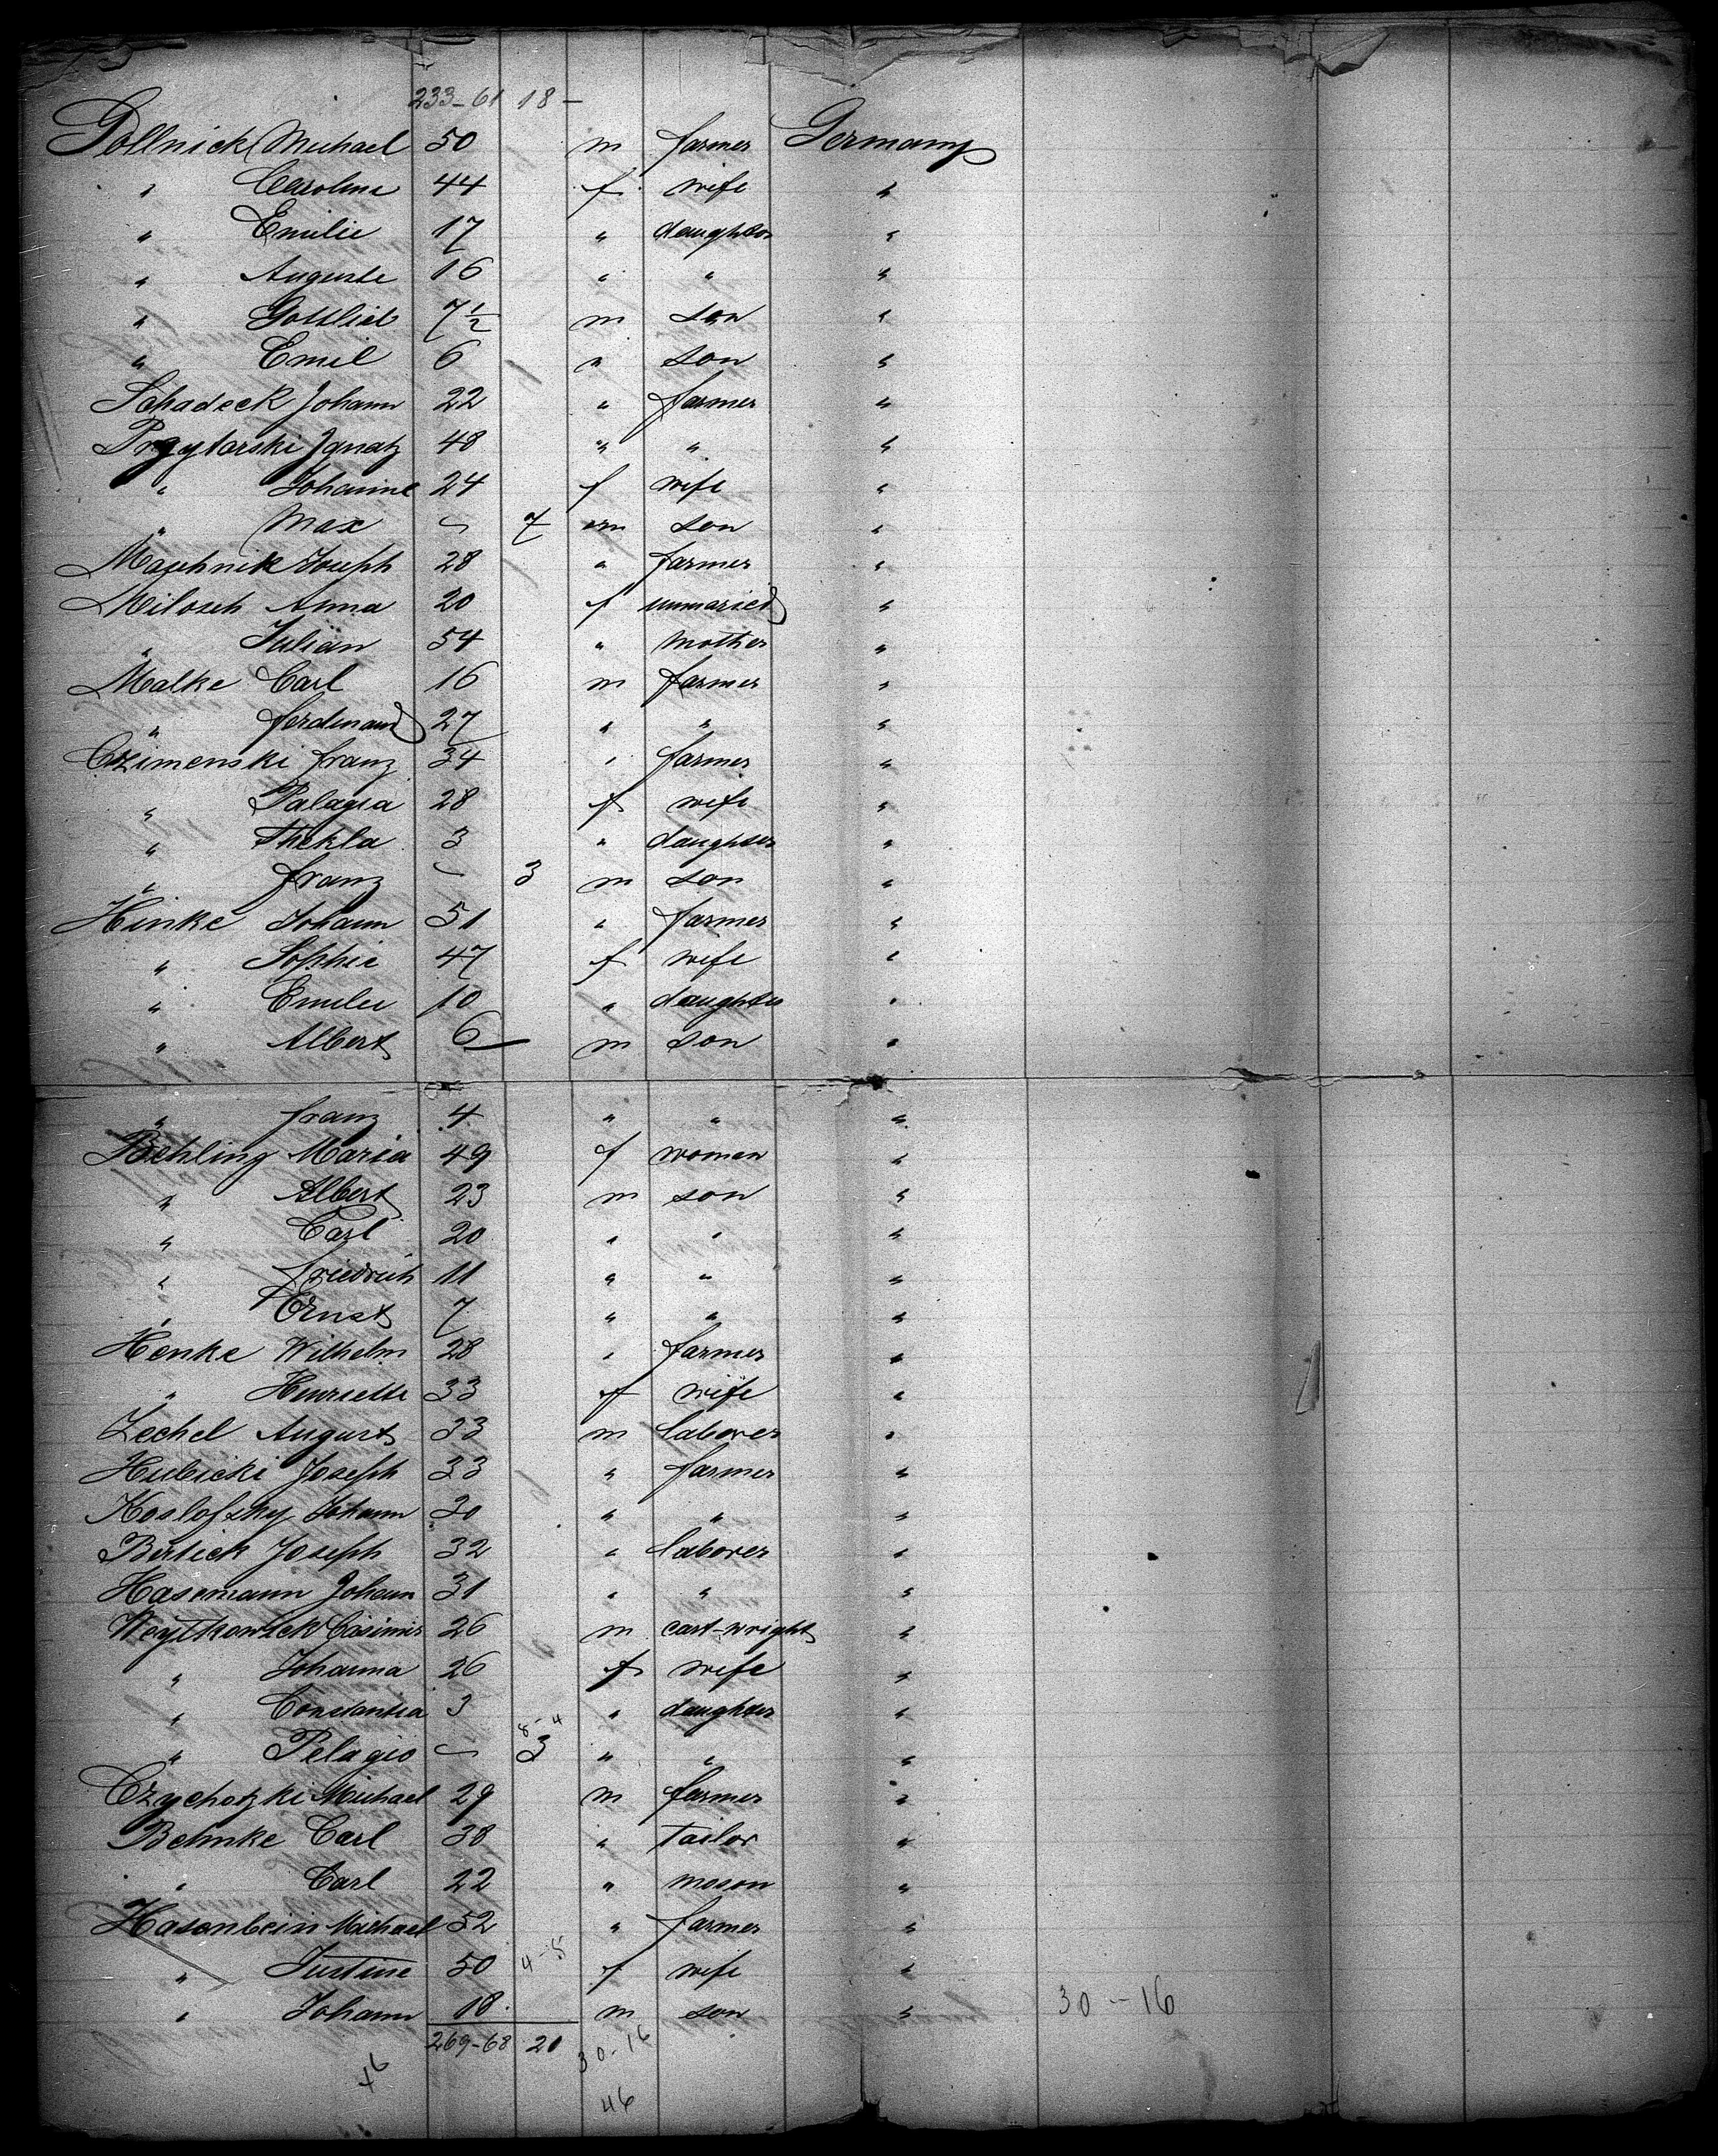 233-61 18-
Pollnick Michael 50 m farmer Germany
" Caroline 44 f wife "
" Emilie 17 " daughter "
" Auguste 16 " " "
" Gottlieb 7½ m son "
" Emil 6 " son "
Schadeck Johann 22 " farmer "
Przytarski Ignatz 48 " " "
" Johanne 24 f wife "
" Max - 7 m son "
Maschnik Joseph 28 " farmer "
Milosch Anna 20 f unmaried "
" Julian 54 " mother "
Malke Carl 16 m farmer "
" Ferdinand 27 " " "
Czimenski Franz 34 " farmer "
" Palagia 28 f wife "
" Thekla 3 " daughter "
" Franz - 3 m son "
Hinke Johann 51 " farmer "
" Sophie 47 f wife "
" Emilie 10 " daughter "
" Albert 6 m son "
" Franz 4 " " "
Behling Maria 49 f woman "
" Albert 23 m son "
" Carl 20 " " "
" Friedrich 11 " " "
" Ernst 7 " " "
Henke Wilhelm 28 " farmer "
" Henriette 33 f wife "
Zechel August 33 m laborer "
Hubicki Joseph 33 " farmer "
Koslofzky Johann 30 " " "
Butick Joseph 32 " laborer "
Hasemann Johann 31 " " "
Woytkowick Casimir 26 m cart-wright "
" Johanna 26 f wife "
" Constantia 3 " daughter "
8-4
" Pelagio - 3 " " "
Czychotzki Michael 29 m farmer "
Behnke Carl 38 " tailor "
" Carl 22 " mason "
Hasenbein Michael 52 " farmer "
" Justine 50 4-5 f wife "
" Johann 18. m son " 30-16
269-68 20 30-16
46